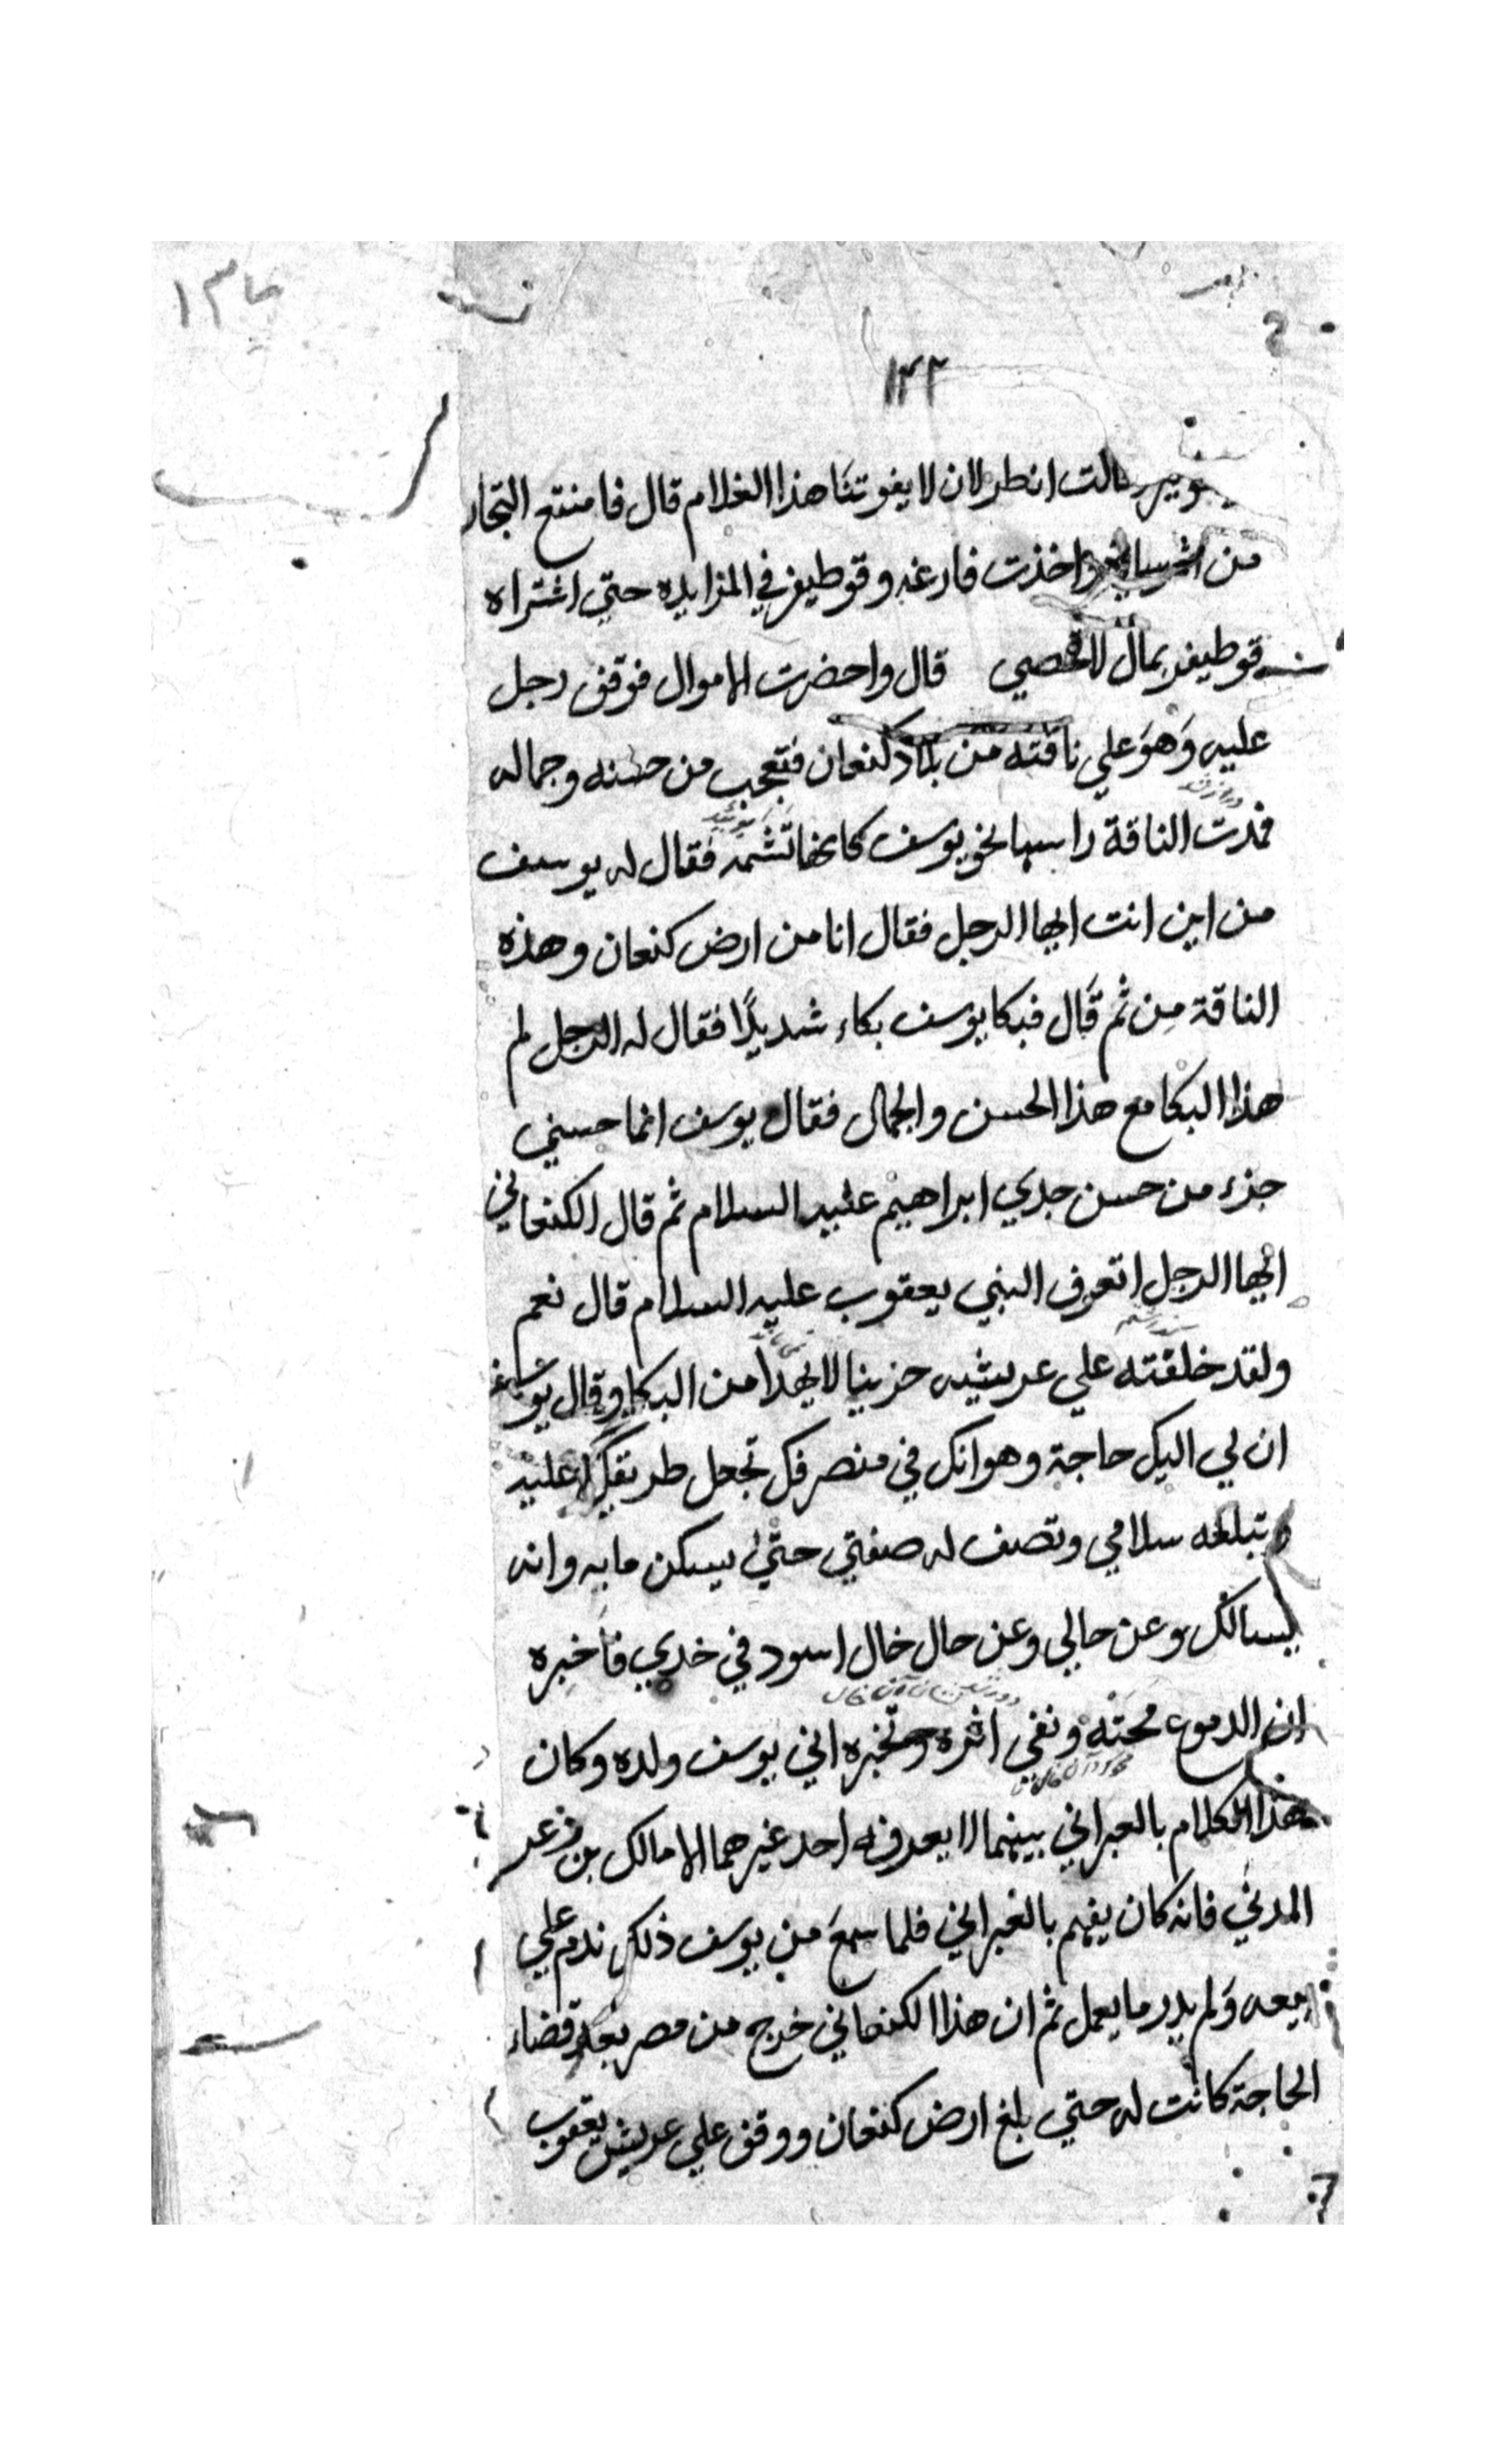 ١٣٢
قالت انطر لان لا يفوتنا هذا الغلام قال فامتنع التجار
من واخذت فارغه وقوطيفر في المزايده حتي اشتراه
قوطيفر بمال لا تحصي قال واحضرت الاموال فوقف رجل
عليه وَهوَ علي ناقته من بلاد كنعان فتعجب من حسنه وجماله
فمدت الناقة راسها نحو يوسف كانها تشمه فقال له يوسف
من اين انت ايها الرجل فقال انا من ارض كنعان وهذه
الناقة مِن ثم قال فبكا يوسف بكاء شديدًا فقال له الرجل لم
هذا البكا مع هذا الحسن والجمال فقال يوسف انما حسني
جزء من حسن جدي ابراهيم عليه السلام ثم قال الكنعاني
ايها الرجل اتعرف النبي يعقوب عليه السلام قال نعم
ولقد خلفته علي عريشه حزينا لا يهدا من البكا وقال يوسف
ان لي اليك حاجة وهو انك في منصرفك تجعل طريقك عليه
وتبلغه سلامي وتصف له صفتي حتي يسكن ما به وانه
يسالك وعن حالي وعن حال خال اسود في خدي فاخبره
ان الدموع محته ونفي اثره وتخبره اني يوسف ولده وكان
هذا الكلام بالعبراني بينهما لا يعرفه احد غيرهما الا مالك بن زعر
المدني فانه كان يفهم بالعبراني فلما سمعَ من يوسف ذلك ندم علي
بيعه وَلم يدر ما يعمل ثم ان هذا الكنعاني خرج من مصر بعد قضاء
الحاجة كانت له حتي بلغ ارض كنعان ووقف علي عريش يعقوب